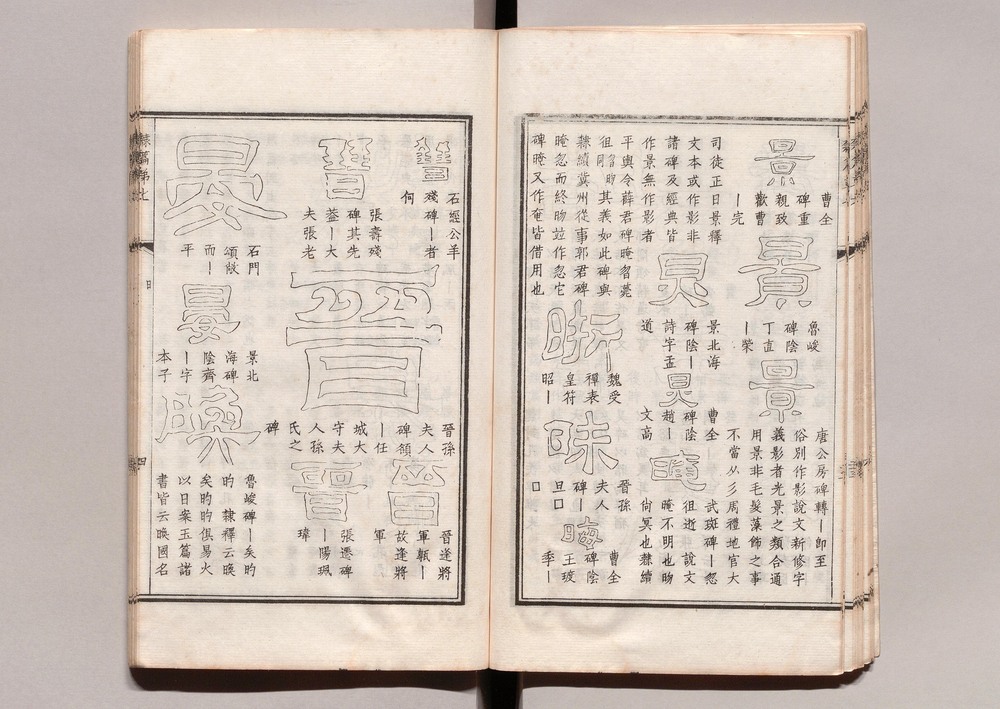 景
曹全
碑重
親致
歡曹
｜完
景
魯峻
碑陰
丁直
｜榮
景
唐公房碑轉｜即至
俗別作影說文新修字
義影者光景之類合通
用景非毛髮藻飾之事
不當从彡周禮地官大
司徒正日景釋
文本或作影非
諸碑及經典皆
作景無作影者
炅
景北海
碑陰｜
詩字孟
道
炅
曹全
碑陰
趙｜
文高
晻
武斑碑｜忽
徂逝 說文
晻不明也昒
尙冥也隸續
平輿令薛君碑晻曶薨
徂同曶昒其義如此碑與
隸續冀州從事郭君碑
晻忽而終昒竝作忽它
碑晻又作奄皆借用也
昕
魏受
禪表
皇符
昭｜
昧
晉孫
夫人
碑｜
旦□
□
晦
曹全
碑陰
王玻
季｜
晉
石經公羊
殘碑｜者
何
晉
張壽殘
碑其先
蓋｜大
夫張老
晉
晉孫
夫人
碑領
｜任
城大
守夫
人孫
氏之
碑
晉
晉逢將
軍甎｜
故逢將
軍
晉
張遷碑
｜陽珮
瑋
石門
頌
而｜
平
晏
景北
海碑
陰齊
｜字
本子
魯峻碑｜矣昀
昀 隸釋云
矣昀昀俱易火
以日案玉篇諸
書皆云 國名
隸篇弟七
四